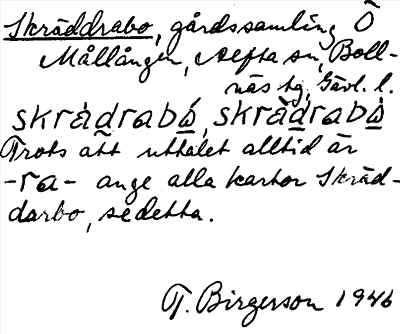 Skräddrabo, gårdssamling Ö
Mållången, Alfta sn, Boll-
näs tg, Gävl. l.
skràdrabó, skràdrabò
Trots att uttalet alltid är
-ra- ange alla kartor Skräd-
darbo, se detta.
T. Birgerson 1946